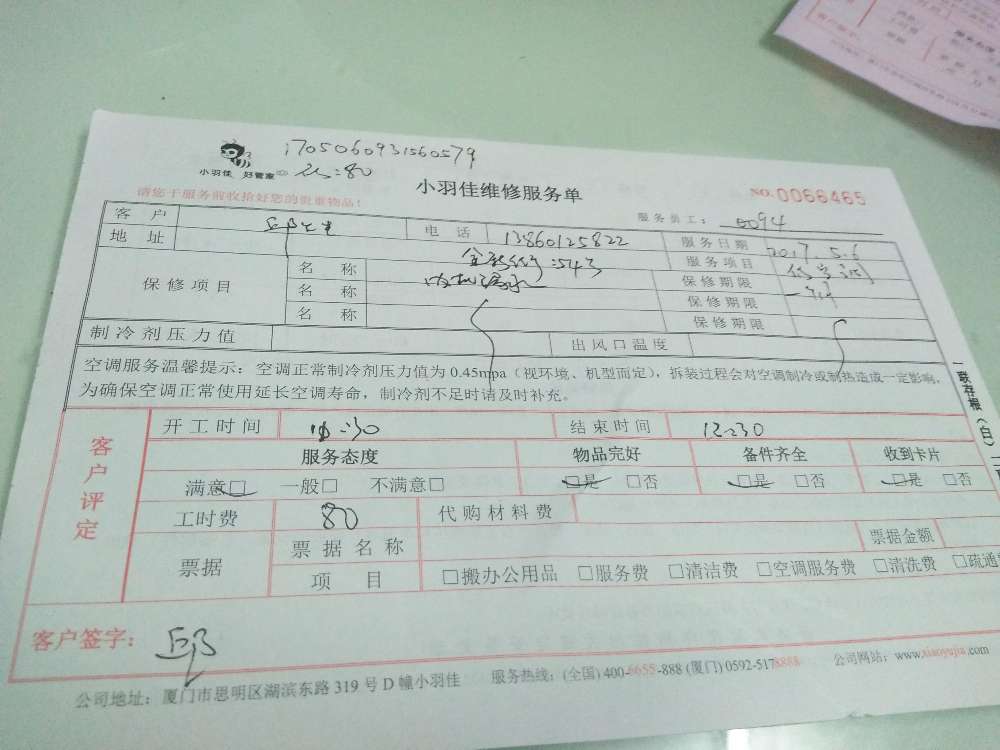 1705060931560579
小羽佳 好管家
80
小羽佳维修服务单
NO.0066465
请您于服务前收拾好您的贵重物品！
服务员工：
客 户 邱先生 电 话 13860125822 服务日期 2017.5.6
地 址 服务项目
保修项目 名 称 内机漏水 保修期限 一个月
名 称 保修期限
名 称 保修期限
制冷剂压力值 出风口温度
空调服务温馨提示：空调正常制冷剂压力值为0.45mpa（视环境、机型而定），拆装过程会对空调制冷或制热造成一定影响，
为确保空调正常使用延长空调寿命，制冷剂不足时请及时补充。
一联存根（白）
客户评定
开工时间 结束时间 12:30
服务态度 物品完好 备件齐全 收到卡片
满意□ 一般□ 不满意□ □是 □否 □是 □否 □是 □否
工时费 80 代购材料费
票据 票据名称 票据金额
项 目 □搬办公用品 □服务费 □清洁费 □空调服务费 □清洗费 □疏通
客户签字： 邱
公司地址：厦门市思明区湖滨东路319号D幢小羽佳 服务热线：(全国)400-6655-888 (厦门)0592-5178888 公司网站：www.xiaoyujia.com